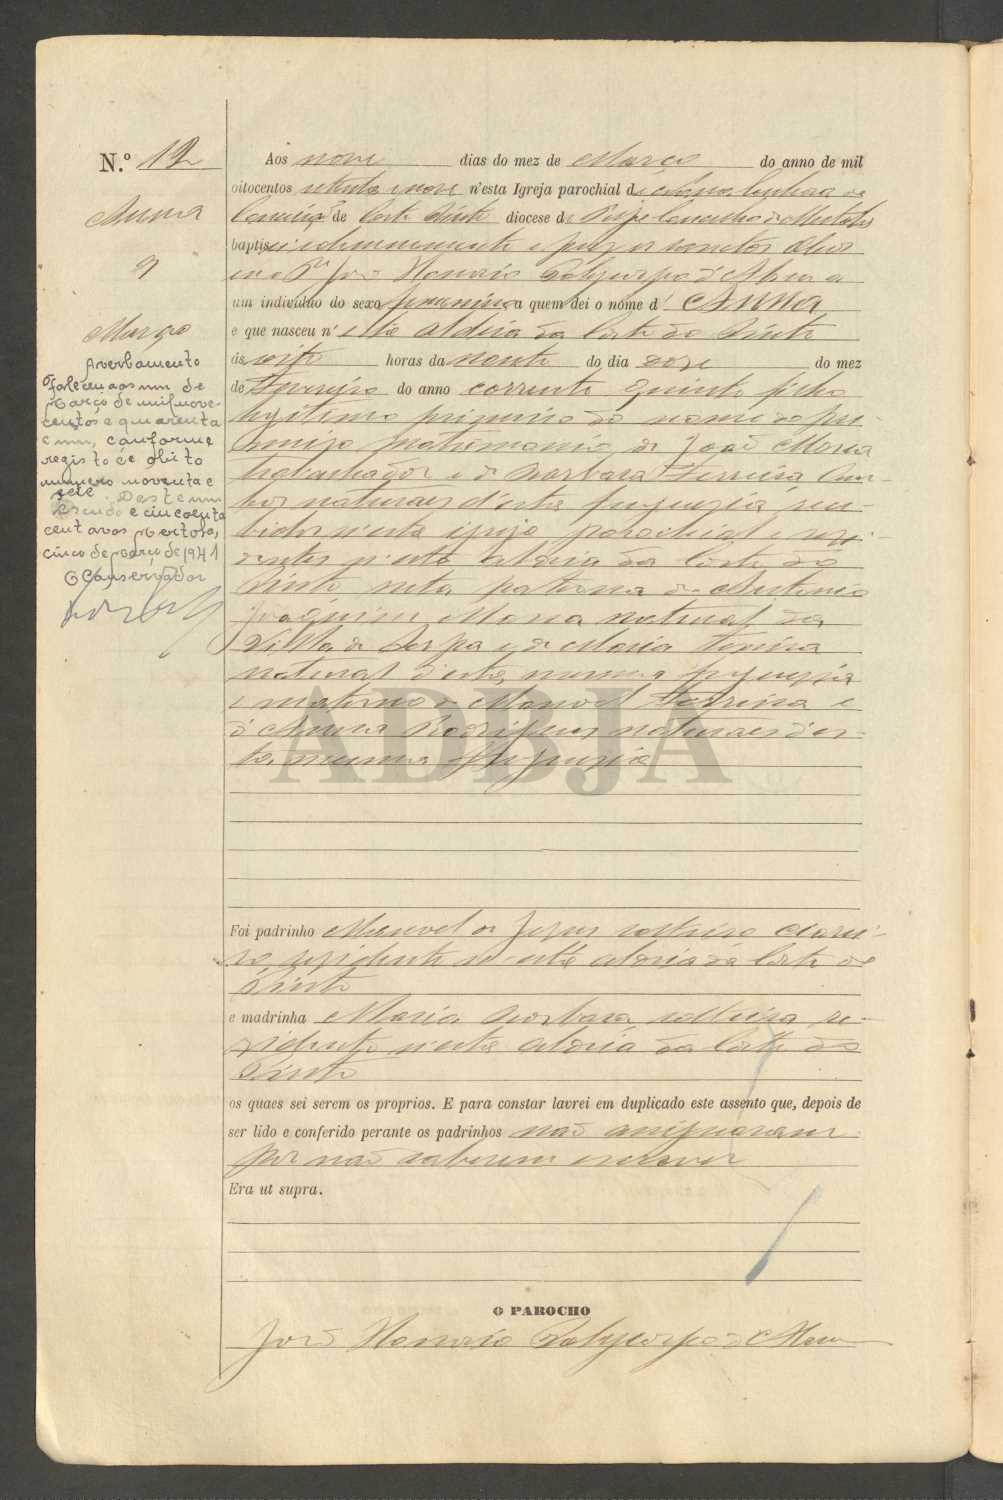 N.º 12
Anna
9
Março
Averbamento
Faleceu aos um de
Março de mil nove-
centos e quarenta
e um, conforme
registo de obito
numero noventa e
sete. Deste um
escudo e cincoenta
centavos Mertola,
cinco de Março de 1941
O Conservador
Aos nove dias do mez de Março do anno de mil
oitocentos setenta e nove n'esta Igreja parochial de Nossa Senhora da
Conceição de Corte Pinto diocese de Beja Concelho de Mertola
baptisei solemnemente e puz os santos oleos
eu o Pr. João Honorio Polycarpo d'Abreu a
um individuo do sexo feminino a quem dei o nome d' Anna
e que nasceu n'esta aldeia da Corte do Pinto
ás oito horas da noute do dia doze do mez
de Fevereiro do anno corrente quinto filho
legitimo primeiro do nome do pri-
meiro matrimonio de João Maria
trabalhador e de Barbara Ferreira am-
bos naturaes d'esta freguezia, rece-
bidos n'esta igreja parochial e resi-
dentes n'esta aldeia da Corte do
Pinto neta paterna de Antonio
Joaquim Maria natural da
Villa de Serpa e de Maria Thereza
natural d'esta mesma freguezia
e materna de Manoel Ferreira e
d'Anna Rodrigues naturaes d'es-
ta mesma freguezia
ADBJA
Foi padrinho Manoel de Jesus solteiro
residente n'esta aldeia da Corte do
Pinto
e madrinha Maria Barbara, solteira re-
sidente n'esta aldeia da Corte do
Pinto
os quaes sei serem os proprios. E para constar lavrei em duplicado este assento que, depois de
ser lido e conferido perante os padrinhos não assignaram
por não saberem escrever
Era ut supra.
O PAROCHO
João Honorio Polycarpo d'Abreu